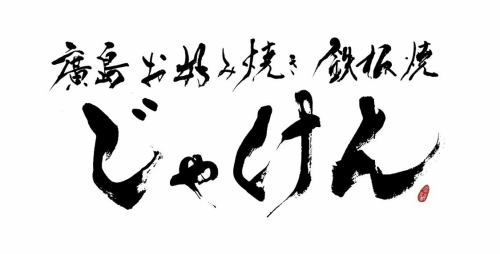 廣島 お好み焼き 鉄板焼
じゃけん